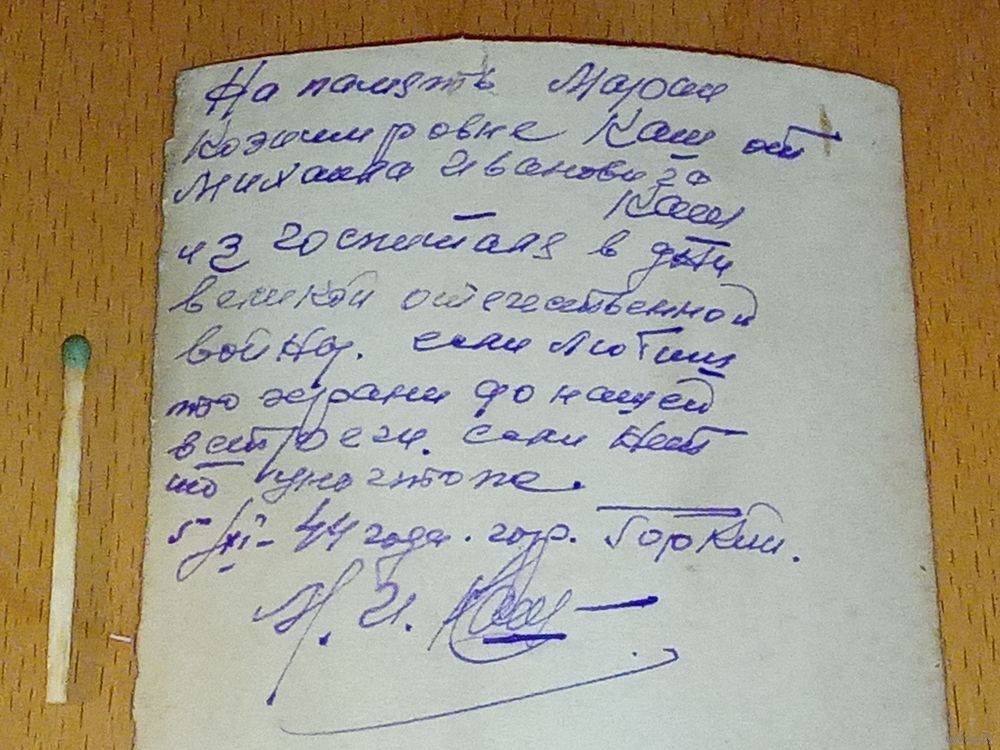 На память Марои
Козимировне Каш от
Михаила Иванови за
Каш
из госпиталя в дни
великой отечественной
войны. если любиш
то храни до нашей
встречи. если нет
то уночтоже.
5/XI - 44 года. гор. Горкий.
М. И. Каш